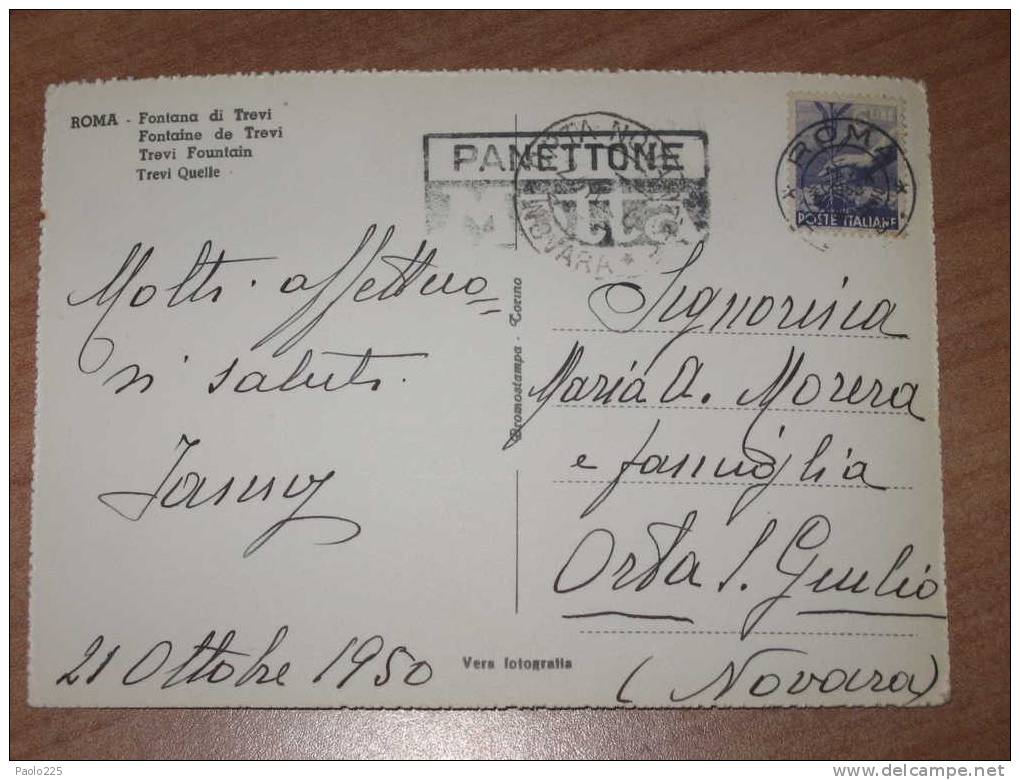 ROMA - Fontana di Trevi
Fontaine de Trevi
Trevi Fountain
Trevi Quelle
PANETTONE
NOVARA
ROMA
POSTE ITALIANE
Molti affettuo=
si saluti.
Fanny
21 Ottobre 1950
Dromostampa - Torino
Vera fotografia
Signorina
Maria A. Morera
e famiglia
Orta S. Giulio
(Novara)
Paolo225
delcampe.net